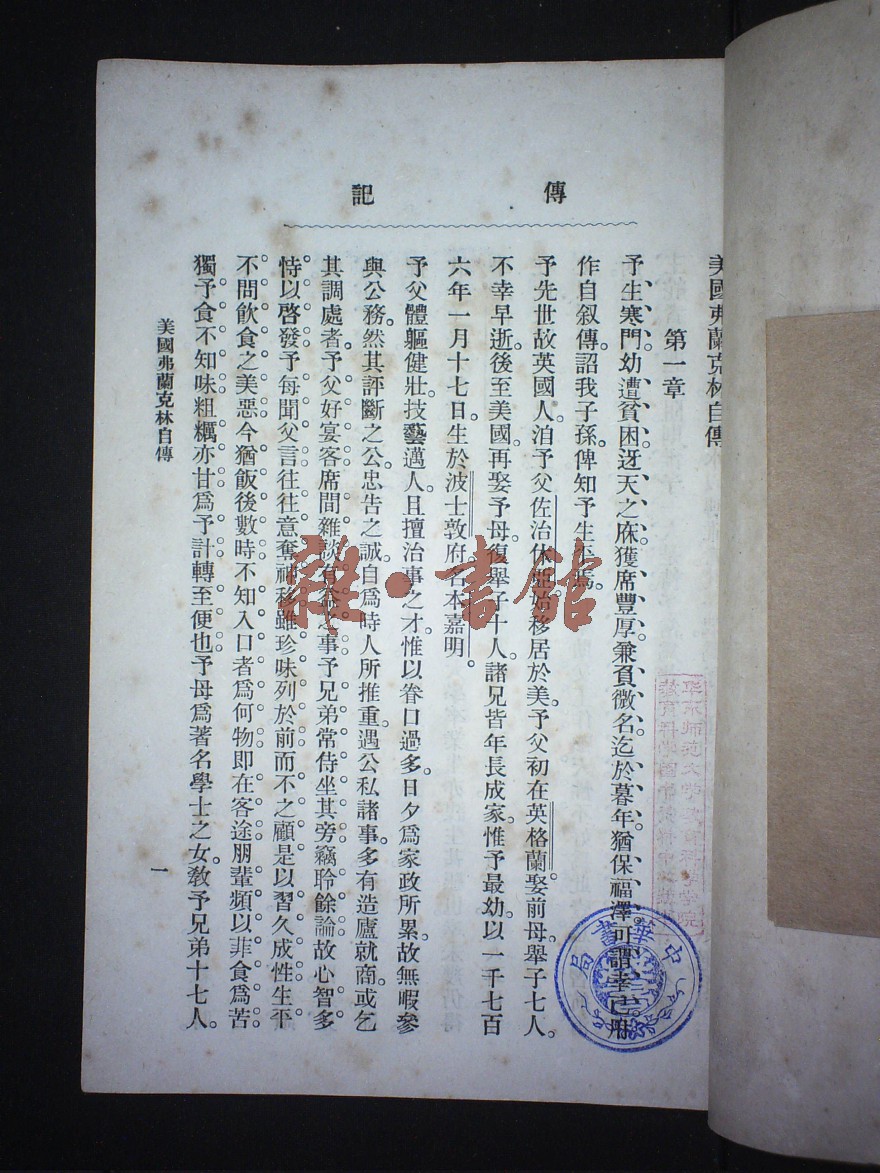 傳記
美國弗蘭克林自傳
第一章
予生寒門幼遭貧困迓天之庥獲席豐厚兼負微名迄於暮年猶保福澤可謂幸已用
作自叙傳詔我子孫俾知予生平焉
予先世故英國人洎予父佐治休亞始移居於美予父初在英格蘭娶前母舉子七人
不幸早逝後至美國再娶予母復舉子十人諸兄皆年長成家惟予最幼以一千七百
六年一月十七日生於波士敦府名本嘉明
予父體軀健壯技藝邁人且擅治事之才惟以眷口過多日夕爲家政所累故無暇參
與公務然其評斷之公忠告之誠自爲時人所推重遇公私諸事多有造廬就商或乞
其調處者予父好宴客席間雜談有益之事予兄弟常侍坐其旁竊聆餘論故心智多
恃以啓發予每聞父言往往意奪神移雖珍味列於前而不之顧是以習久成性生平
不問飲食之美惡今猶飯後數時不知入口者爲何物即在客途朋輩頻以菲食爲苦
獨予食不知味粗糲亦甘爲予計轉至便也予母爲著名學士之女敎予兄弟十七人
美國弗蘭克林自傳
一
雜·書館
中華書局